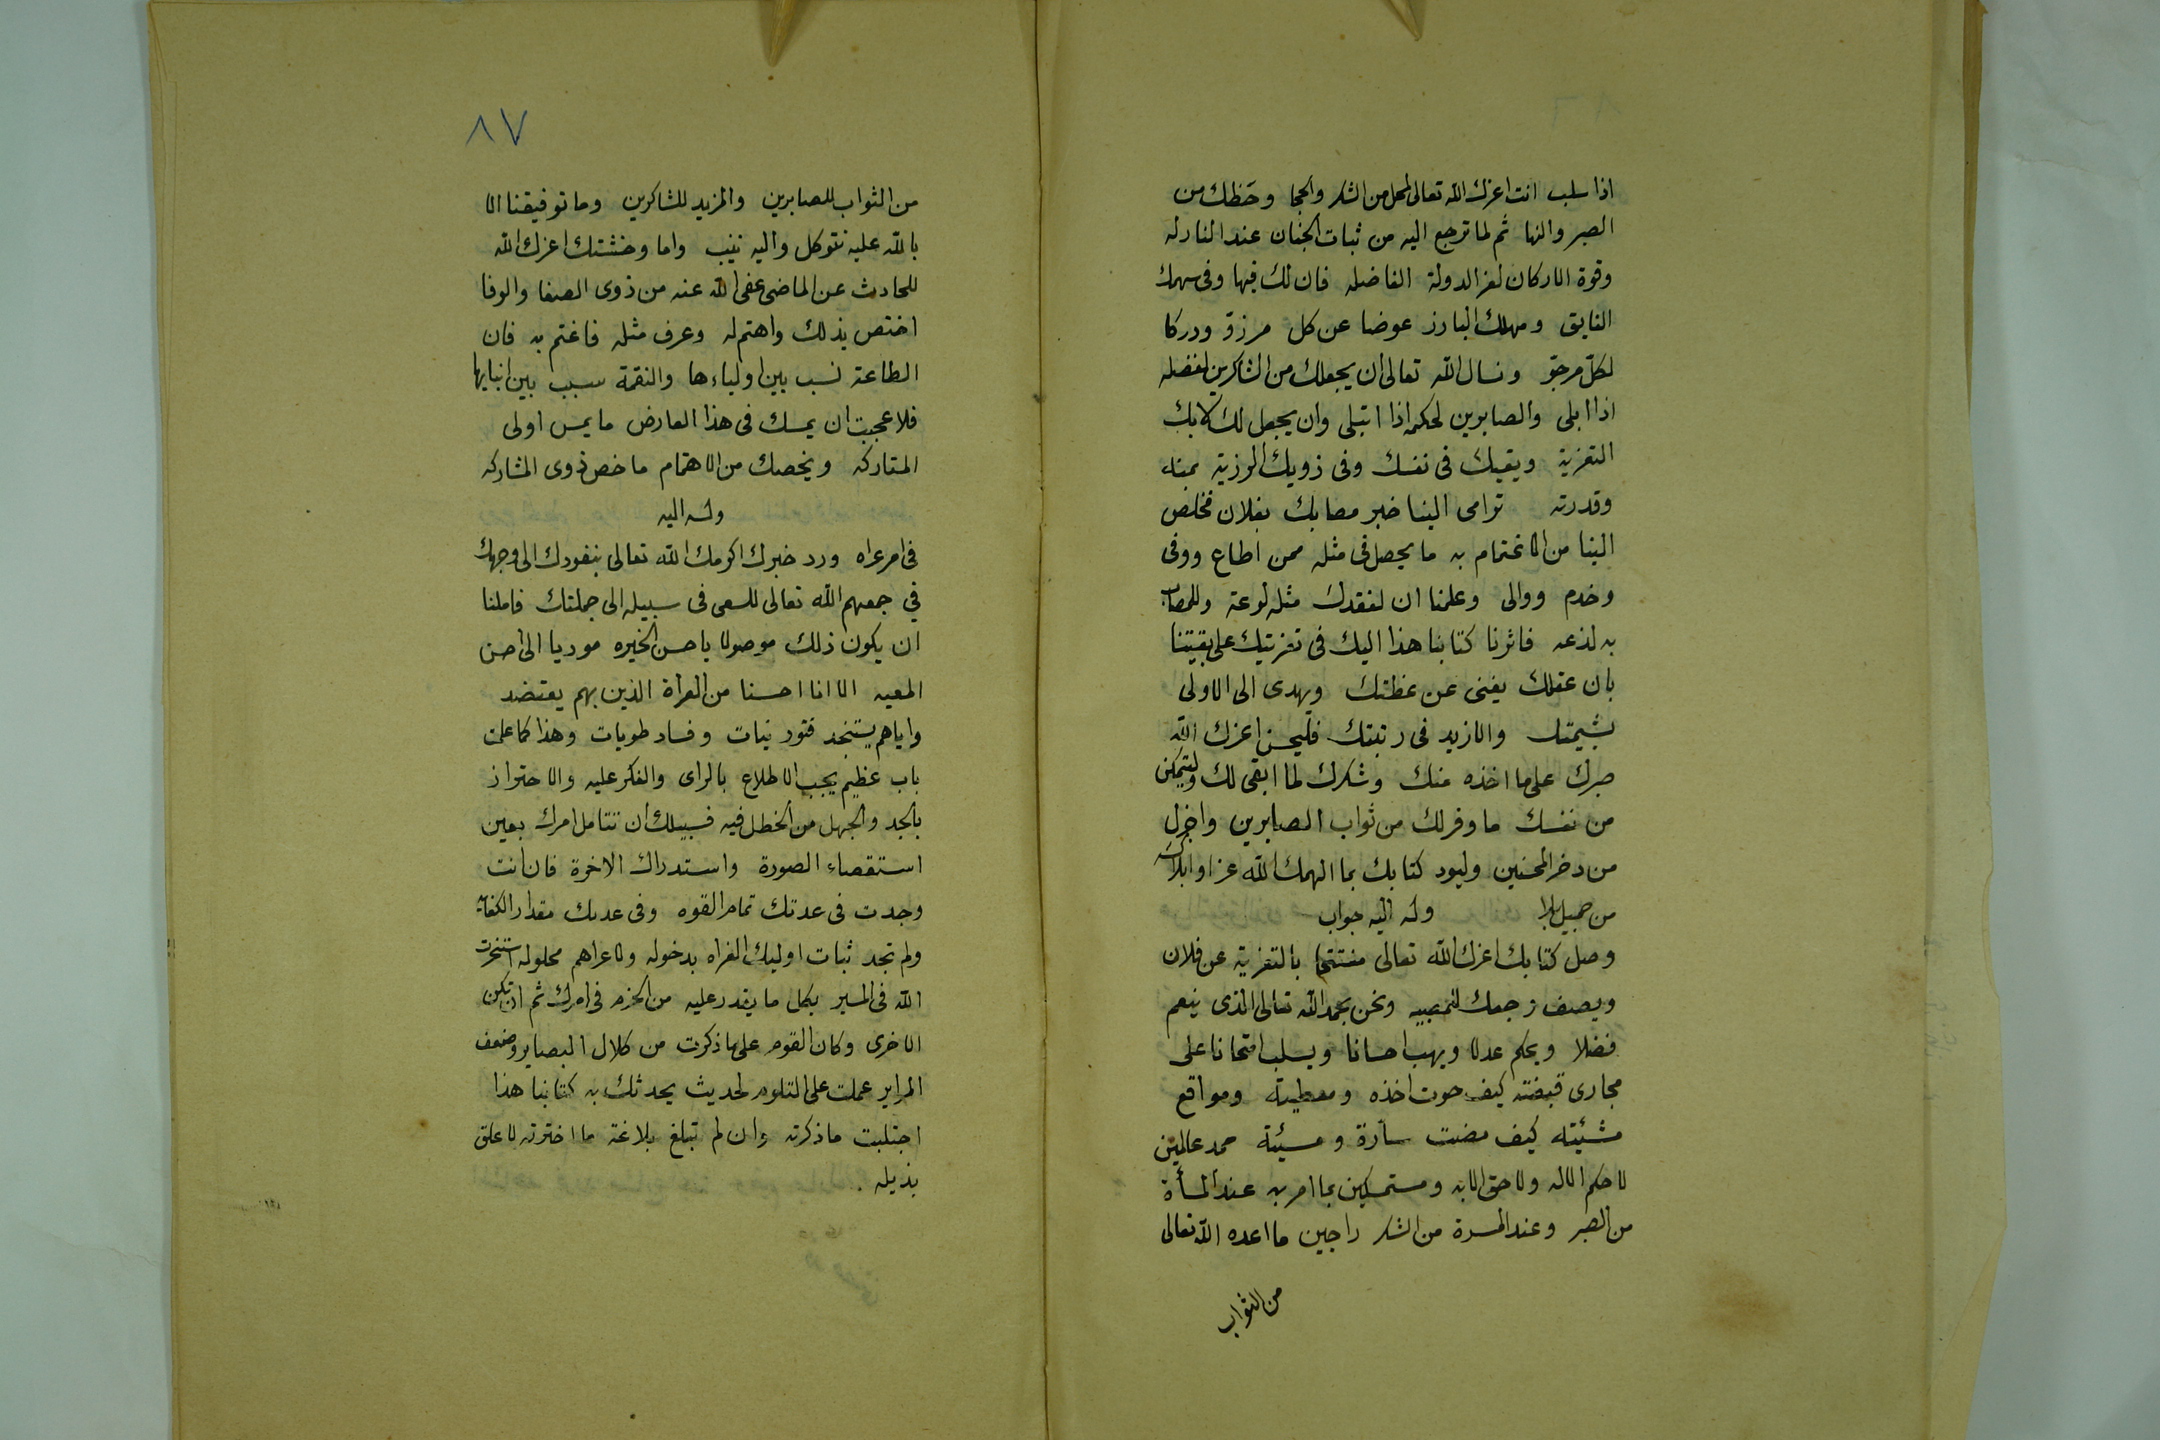 اذا سلب انت اعزك الله تعالى لمحل من الشكر والحجا وحَظك من
الصبر والنها ثم لما ترجع اليه من ثبات الجنان عند النازله
وقوة الاركان لعز الدولة الفاضله فان لك فيها وفى سهمك
الفايق ومهلك البارز عوضا عن كل مرزؤ ودركا
لكلّ مرجوّ ونسال الله تعالى ان يجعلك من الشاكرين لفضله
اذا ابلى والصابرين لحكمه اذا ابتلى وان يجعل لك لا بك
التعزية ويقيك فى نفسك وفى ذويك الرزية بمنه
وقدرته ترامى الينا خبر مصابك بفلان فخلص
الينا من الاغتمام به ما يحصل فى مثله ممن اطاع ووفى
وخدم ووالى وعلمنا ان لفقدك مثله لوعة وللمصاب
به لذعه فاثرنا كتابنا هذا اليك فى تعزيتك على يقيننا
بان عقلك يغنى عن عظتك ويهدى الى الاولى
بشيمتك والازيد فى رتبتك فليحسن اعزك الله
صبرك على ما اخذه منك وشكرك لما ابقى لك وليتمكن
من نفسك ما وفر لك من ثواب الصابرين واجزل
من دخر المحسنين وليرد كتابك بما الهمك الله عزا وابلاك
من جميل بلا وله اليه جواب
وصل كتابك اعزك الله تعالى مفتتحا بالتعزية عن فلان
ويصف وجعك للمصيبه ونحن بحمد الله تعالى الذى ينعم
فضلا ويحكم عدلا ويهب احسانا ويسلب امتحانا على
مجارى قبضته كيف حوت اخذه ومعطية ومواقع
مشئيته كيف مضت سارة ومسيئة حمد عالمين
لا حكم الا له ولا حق الا به ومستمسكين بما امر به عند المسأة
من الصبر وعند المسرة من الشكر راجين ما اعده الله تعالى
من الثواب
٨٧
من الثواب للصابرين والمزيد للشاكرين وما توفيقنا الا
بالله عليه نتوكل واليه ننيب واما وخشتك اعزك الله
للحادث عن الماضى عفى الله عنه من ذوى الصفا والوفا
اختص بذلك واهتم له وعرف مثله فاغتم به فان
الطاعة نسب بين اولياءها والنقمة سبب بين ابنايها
فلا عجبت ان يمسك فى هذا العارض ما يمس اولى
المتاركه ويخصك من الاهتمام ما خص ذوى المشاركه
وله اليه
فى امر عراه ورد خبرك اكرمك الله تعالى بنفودك الى وجهك
فى جمعهم الله تعالى للسعى فى سبيله الى جملتك فاملنا
ان يكون ذلك موصولا باحسن الخيره موديا الى احسن
المعيه الا انا احسنا من الغرأة الذين بهم يعتضد
واياهم يستنجد فتور نيات وفساد طويات وهذا كما علمت
باب عظيم يجب الاطلاع بالراى والفكر عليه والاحتراز
بالجد والجهل من الخطل فيه فسبيلك ان تتامل امرك بعين
استقصاء الصورة واستدراك الاخرة فان انت
وجدت فى عدتك تمام القوه وفى عددك مقدار الكفايه
ولم تجد ثبات اوليك الغراه بدخوله ولا عراهم محلوله استخرت
الله فى المسير بكل ما يقدر عليه من الحزم فى امرك ثم ان تكن
الاخرى وكان القوم على ما ذكرت من كلال البصاير وضعف
المراير عملت على التلوم لحديث يحدثك به كتابنا هذا
اجتلبت ما ذكرته وان لم تبلغ بلاغة ما اخترته لاعلق
بذيله .